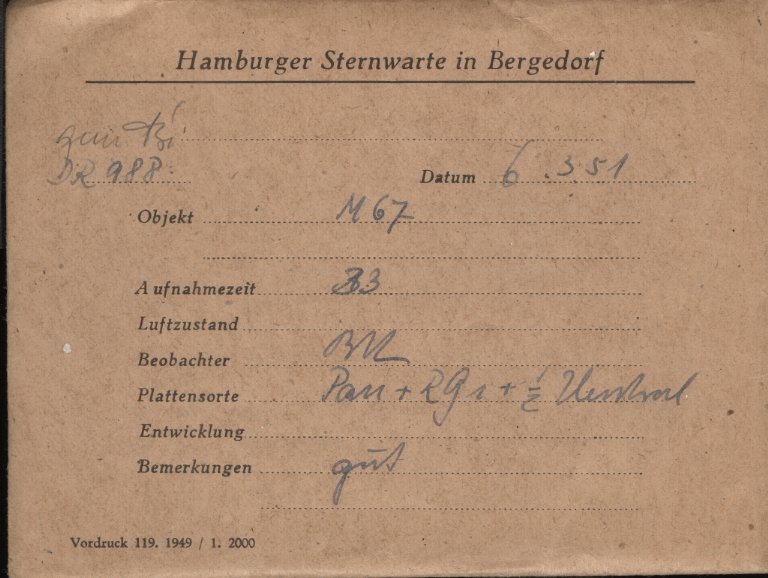 Hamburger Sternwarte in Bergedorf
DR 988
Datum 6.3.51
Objekt M 67
Aufnahmezeit 33
Luftzustand
Beobachter
Plattensorte Pan + RG1 + 1/2 Neutral
Entwicklung
Bemerkungen gut
Vordruck 119. 1949 / 1. 2000